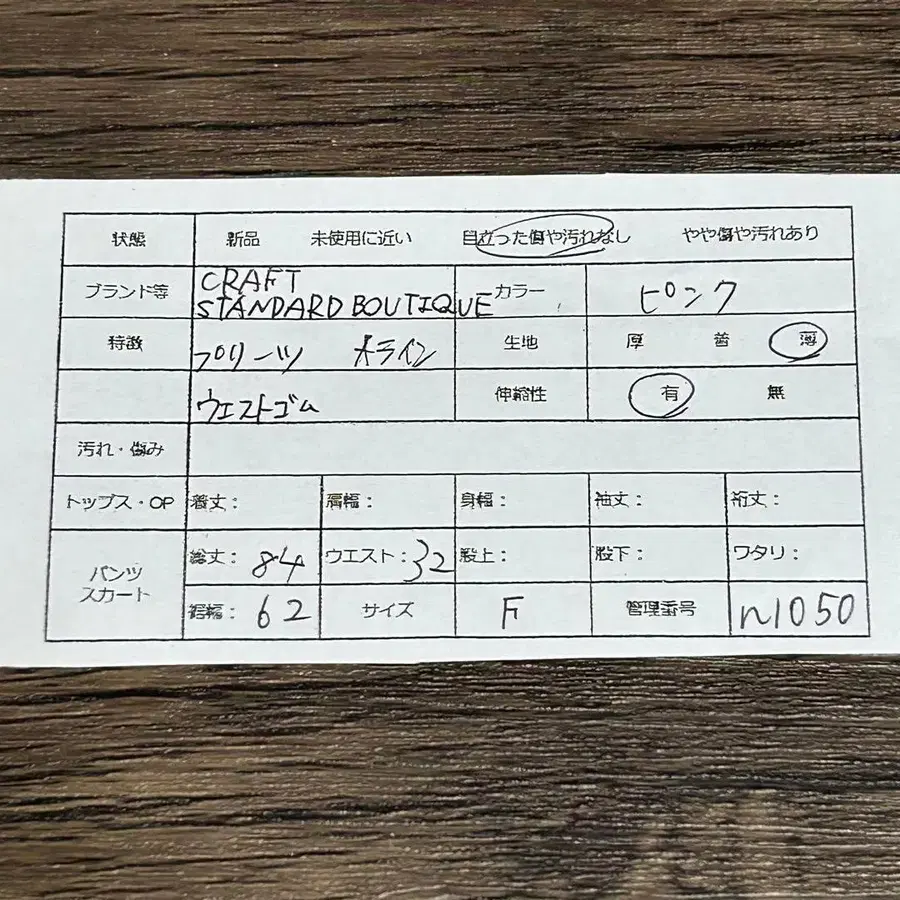 状態 新品 未使用に近い 目立った傷や汚れなし やや傷や汚れあり
ブランド等 CRAFT STANDARD BOUTIQUE カラー ピンク
特徴 プリーツ Aライン 生地 厚 普 薄
ウエストゴム 伸縮性 有 無
汚れ・傷み
トップス・OP 着丈: 肩幅: 身幅: 袖丈: 裄丈:
パンツ スカート 総丈: 84 ウエスト: 32 股上: 股下: ワタリ:
裾幅: 62 サイズ F 管理番号 n1050